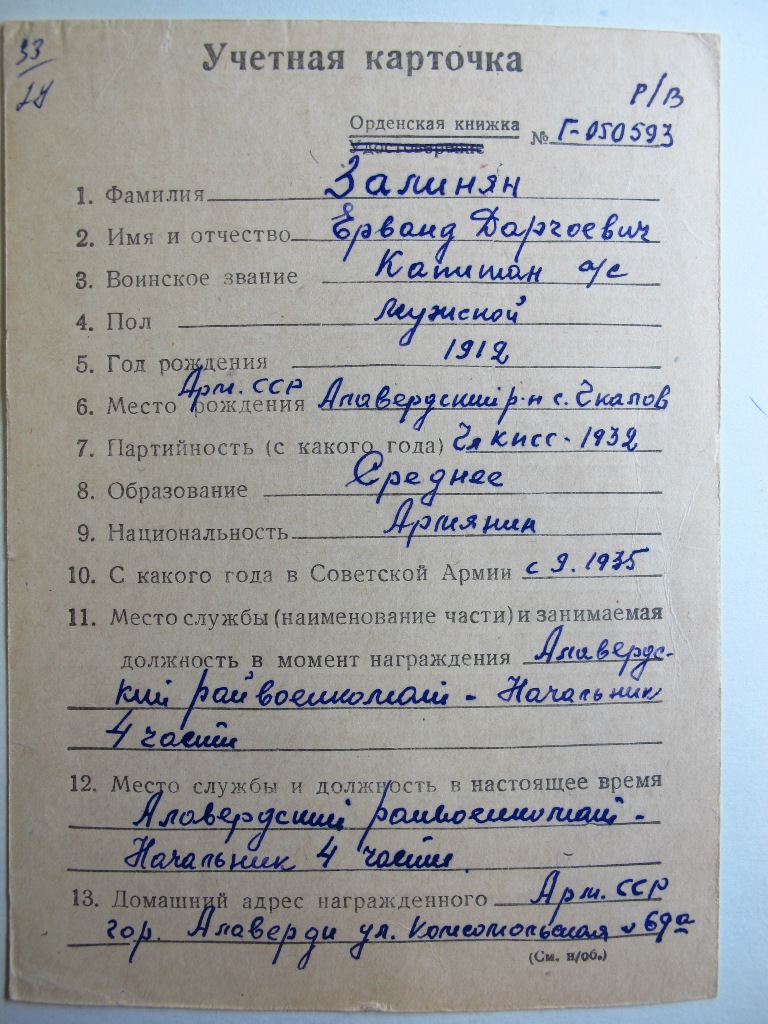 33
24
Учетная карточка
Р/В
Орденская книжка
Удостоверение
№ Г-050593
1. Фамилия Залинян
2. Имя и отчество Ерванд Дарчоевич
3. Воинское звание Капитан а/с
4. Пол мужской
5. Год рождения 1912
Арм. ССР
6. Место рождения Алавердский р-н с. Чкалов
7. Партийность (с какого года) Чл КПСС - 1932
8. Образование Среднее
9. Национальность Армянин
10. С какого года в Советской Армии с 9. 1935
11. Место службы (наименование части) и занимаемая
должность в момент награждения Алавердс-
кий райвоенкомат - Начальник
4 части
12. Место службы и должность в настоящее время
Алавердский райвоенкомат -
Начальник 4 части.
13. Домашний адрес награжденного Арм. ССР
гор. Алаверди ул. Комсомольская 69а
(См. н/об.)